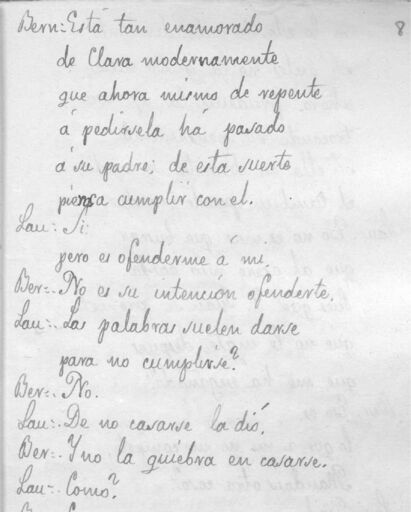 8
Bern:- Está tan enamorado
de Clara modernamente
que ahora mismo de repente
á pedirsela há pasado
á su padre; de esta suerte
piensa cumplir con el.
Lau:- Si:
pero es ofenderme á mi.
Ber:-. No es su intencion ofenderte.
Lau:-. Las palabras suelen darse
para no cumplirse?
Ber:-. No.
Lau:-. De no casarse la dió.
Ber:-. Y no la quiebra en casarse.
Lau:-. Como?